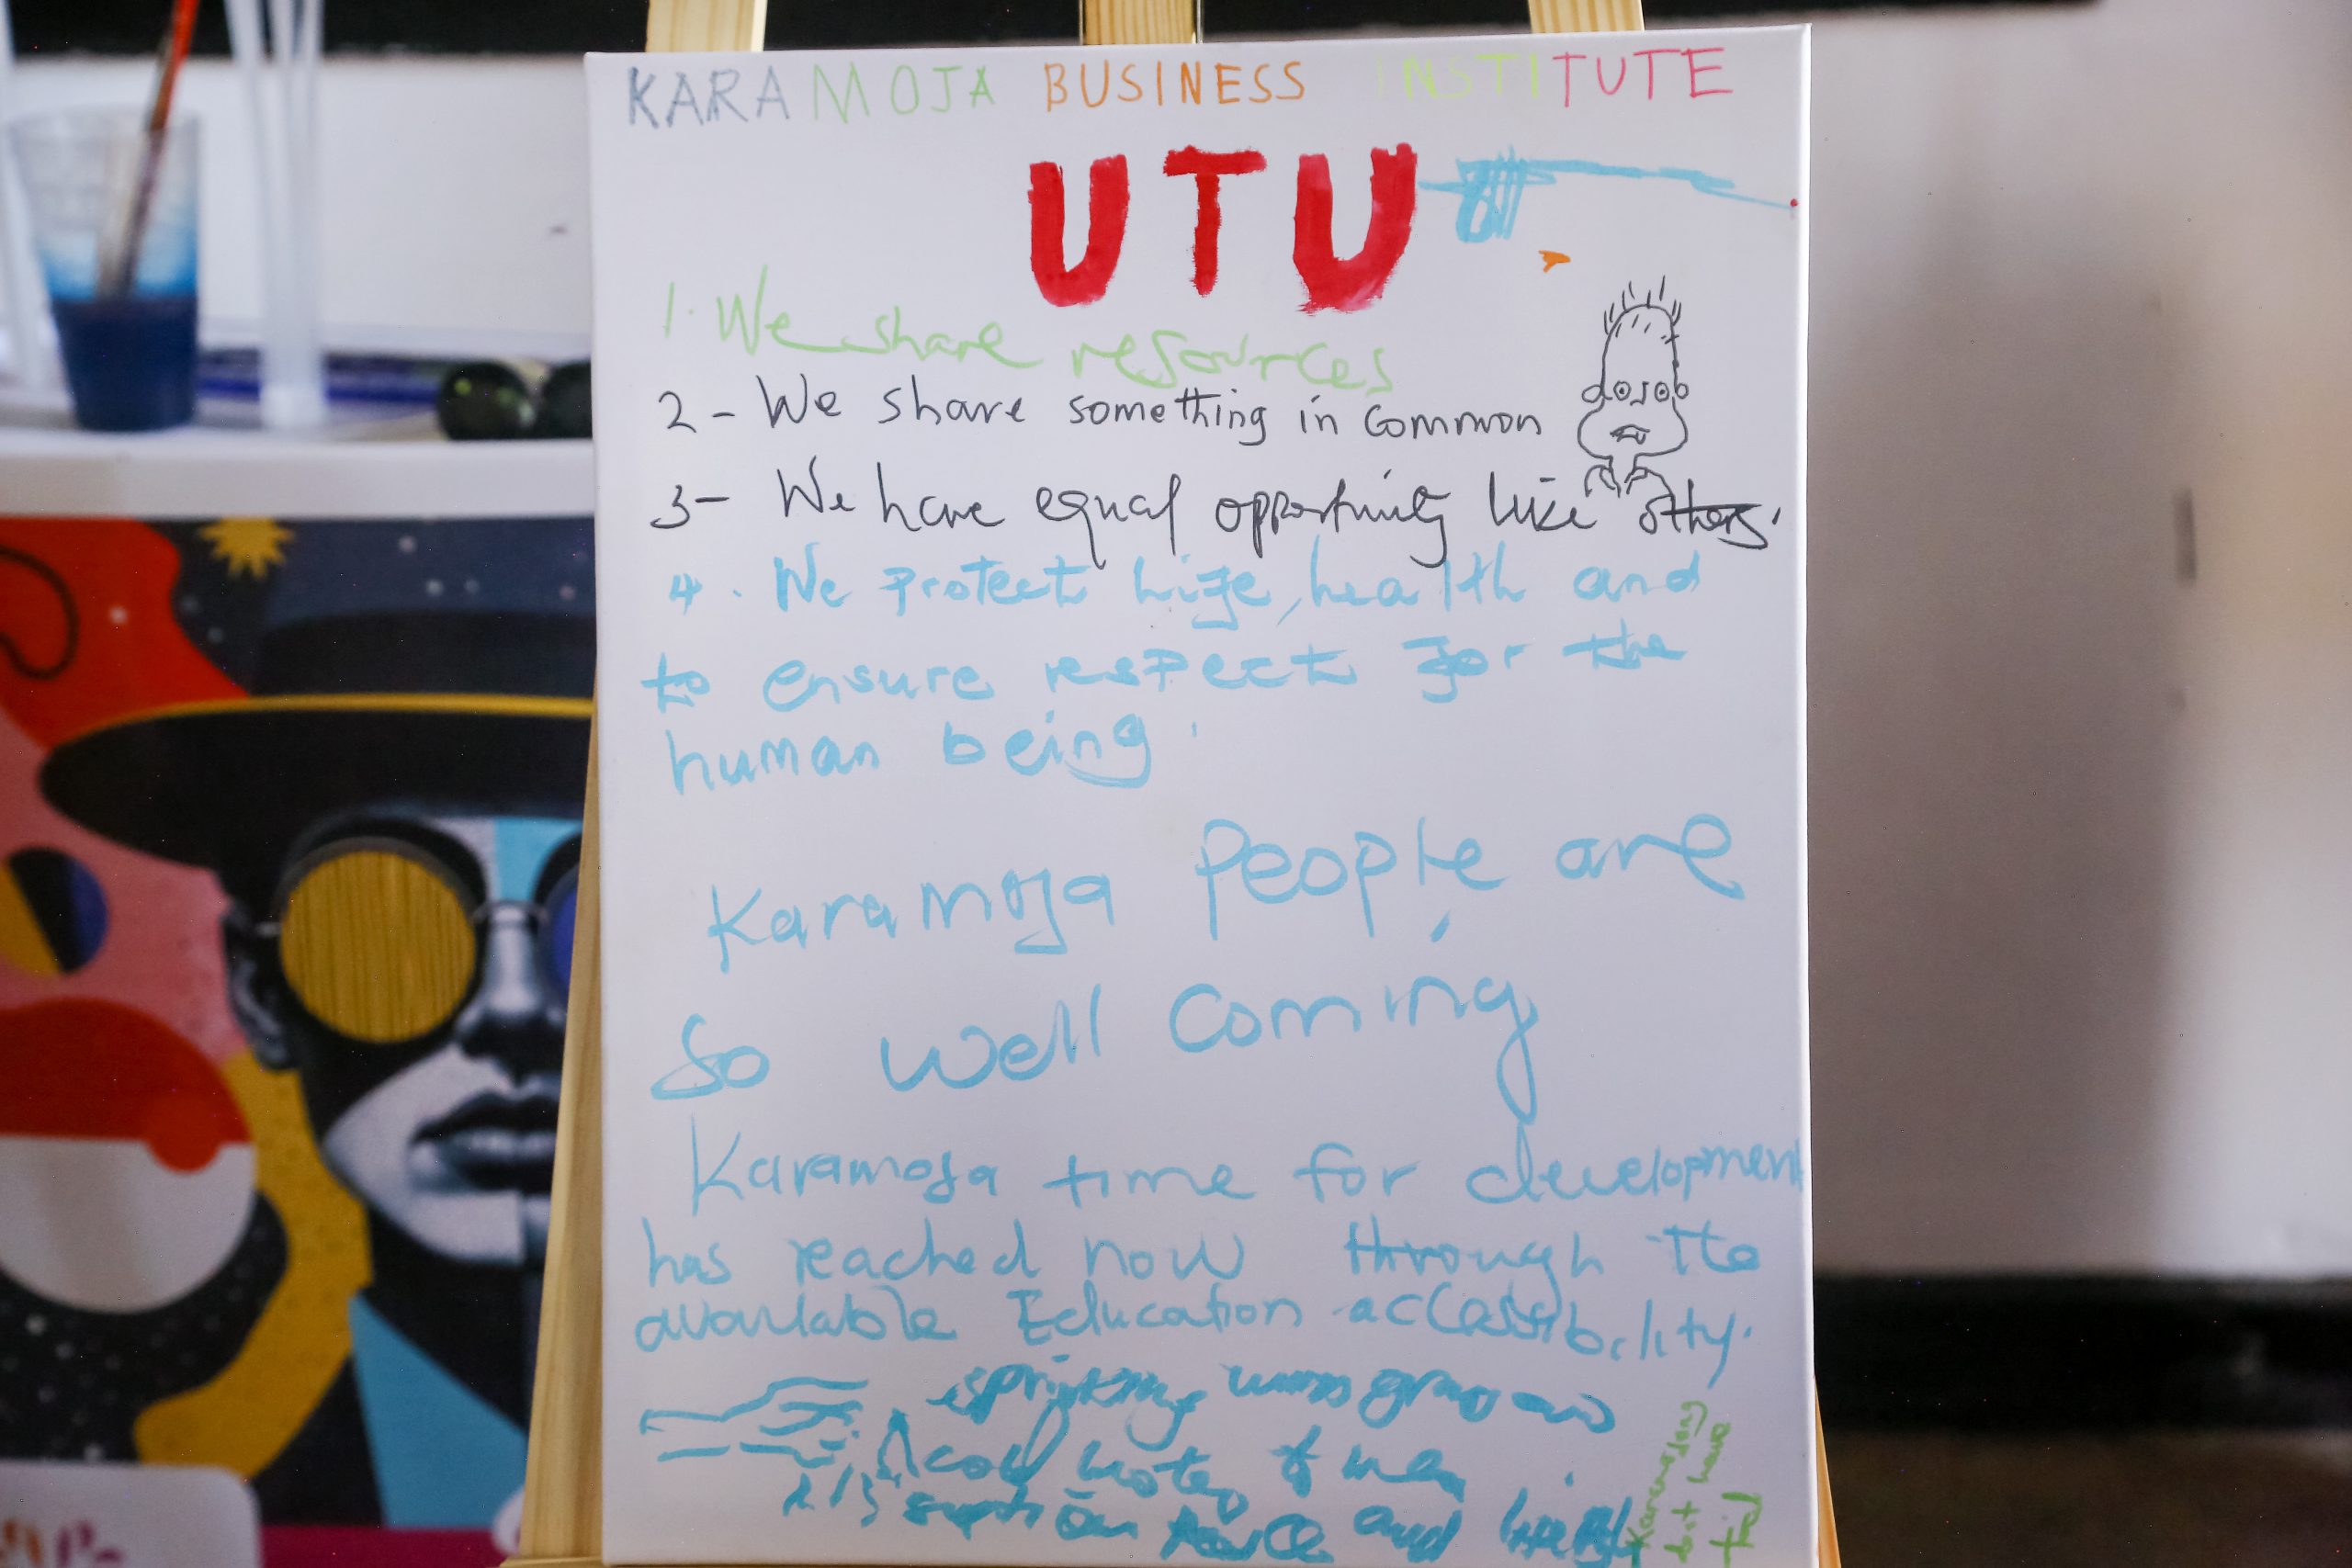 KARAMOJA BUSINESS INSTITUTE
UTU
1. We share resources
2 - We share something in Common
3 - We have equal opportunity like others.
4. We protect life, health and
to ensure respect for the
human being.
Karamoja People are
So well Coming
Karamoja time for development
has reached now through the
available Education accessibility.
cold water of
and